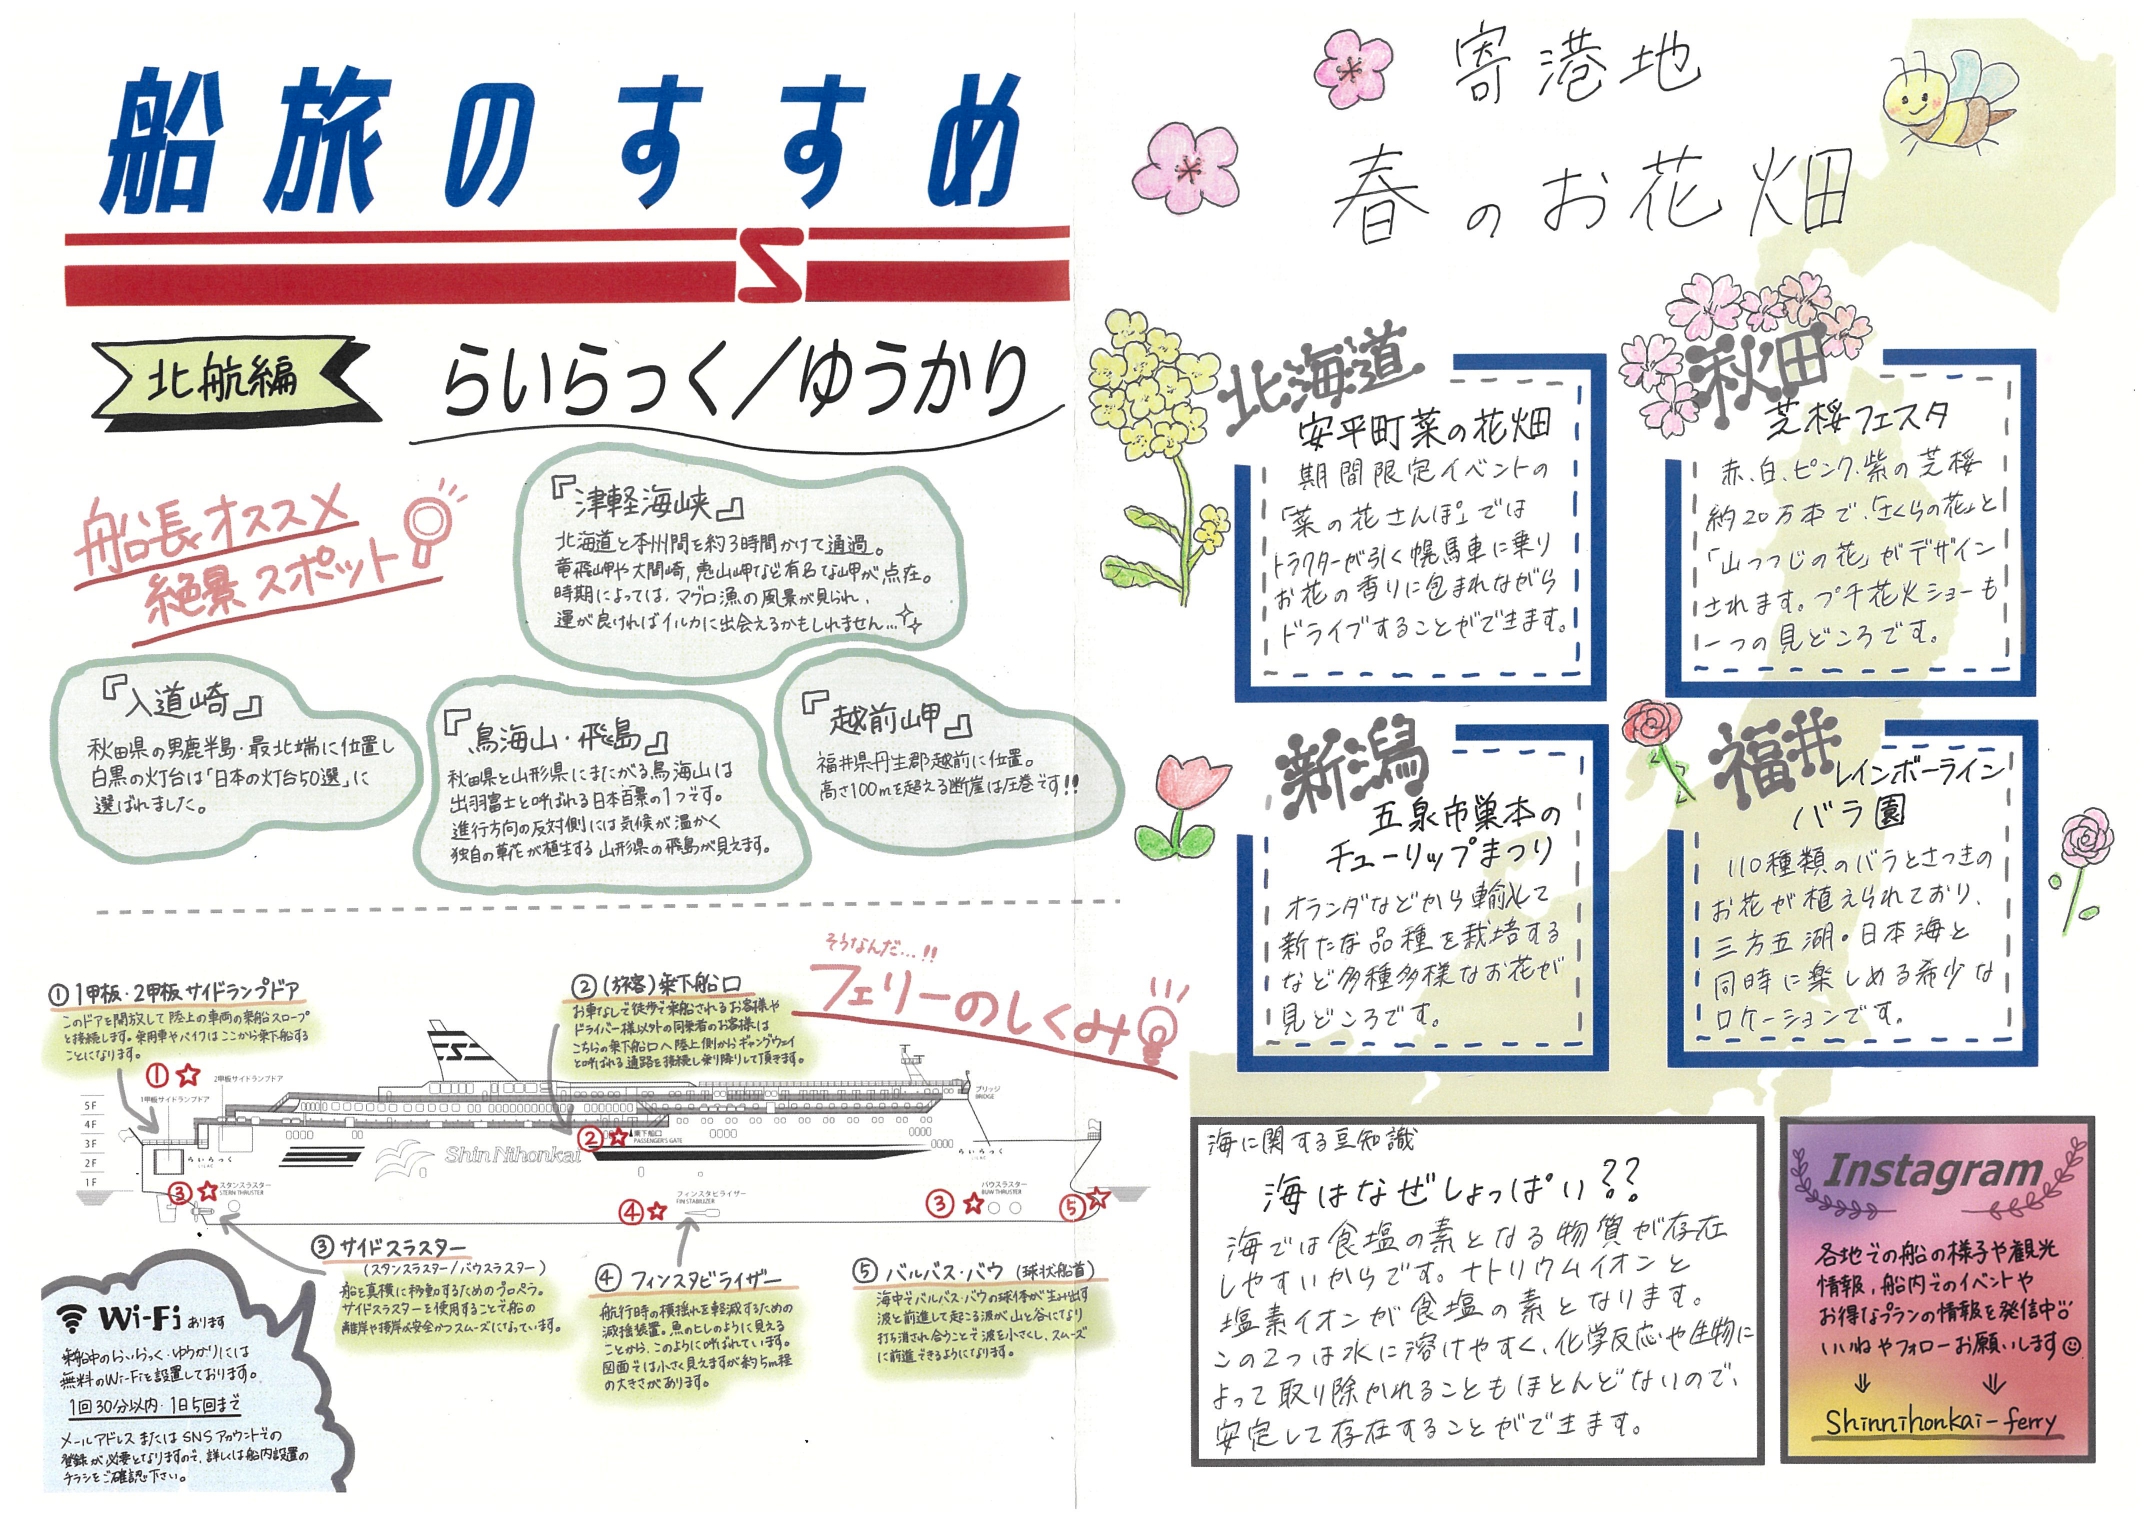 船旅のすすめ
北航編
らいらっく／ゆうかり
船長オススメ
絶景スポット
『津軽海峡』
北海道と本州間を約3時間かけて通過。
竜飛岬や大間崎,恵山岬など有名な岬が点在。
時期によっては,マグロ漁の風景が見られ、
運が良ければイルカに出会えるかもしれません…
『入道崎』
秋田県の男鹿半島・最北端に位置し
白黒の灯台は「日本の灯台50選」に
選ばれました。
『鳥海山・飛島』
秋田県と山形県にまたがる鳥海山は
出羽富士と呼ばれる日本百景の1つです。
進行方向の反対側には気候が温かく
独自の草花が植生する山形県の飛島が見えます。
『越前岬』
福井県丹生郡越前に位置。
高さ100mを超える断崖は圧巻です!!
そうなんだ…!!
フェリーのしくみ
①1甲板・2甲板サイドランプドア
このドアを開放して陸上の車両の乗船スロープ
と接続します。乗用車やバイクはここから乗下船する
ことになります。
②(旅客)乗下船口
お車なしで徒歩で乗船されるお客様や
ドライバー様以外の同乗者のお客様は
こちらの乗下船口へ陸上側からギャングウェイ
と呼ばれる通路を接続し乗り降りして頂きます。
①
2甲板サイドランプドア
1甲板サイドランプドア
5F
4F
3F
2F
1F
らいらっく
LILAC
Shin Nihonkai
②
乗下船口
PASSENGER'S GATE
ブリッジ
BRIDGE
らいらっく
LILAC
③
スタンスラスター
STERN THRUSTER
④
フィンスタビライザー
FIN STABILIZER
③
バウスラスター
BOW THRUSTER
⑤
③サイドスラスター
(スタンスラスター/バウスラスター)
船を真横に移動するためのプロペラ。
サイドスラスターを使用することで船の
離岸や接岸が安全かつスムーズになっています。
④フィンスタビライザー
航行時の横揺れを軽減するための
減揺装置。魚のヒレのように見える
ことから、このように呼ばれています。
図面では小さく見えますが約5m程
の大きさがあります。
⑤バルバス・バウ(球状船首)
海中でバルバス・バウの球体が生み出す
波と前進して起こる波が山と谷になり
打ち消され合うことで波を小さくし、スムーズ
に前進できるようになります。
Wi-Fiあります
乗船中のらいらっく・ゆうかりには
無料のWi-Fiを設置しております。
1回30分以内・1日5回まで
メールアドレスまたはSNSアカウントでの
登録が必要となりますので、詳しくは船内設置の
チラシをご確認下さい。
寄港地
春のお花畑
北海道
安平町菜の花畑
期間限定イベントの
「菜の花さんぽ」では
トラクターが引く幌馬車に乗り
お花の香りに包まれながら
ドライブすることができます。
秋田
芝桜フェスタ
赤、白、ピンク、紫の芝桜
約20万本で、「さくらの花」と
「山つつじの花」がデザイン
されます。プチ花火ショーも
一つの見どころです。
新潟
五泉市巣本の
チューリップまつり
オランダなどから輸入して
新たな品種を栽培する
など多種多様なお花が
見どころです。
福井
レインボーライン
バラ園
110種類のバラとさつきの
お花が植えられており、
三方五湖・日本海と
同時に楽しめる希少な
ロケーションです。
海に関する豆知識
海はなぜしょっぱい??
海では食塩の素となる物質が存在
しやすいからです。ナトリウムイオンと
塩素イオンが食塩の素となります。
この2つは水に溶けやすく、化学反応や生物に
よって取り除かれることもほとんどないので、
安定して存在することができます。
Instagram
各地での船の様子や観光
情報,船内でのイベントや
お得なプランの情報を発信中
いいねやフォローお願いします
Shinnihonkai-ferry